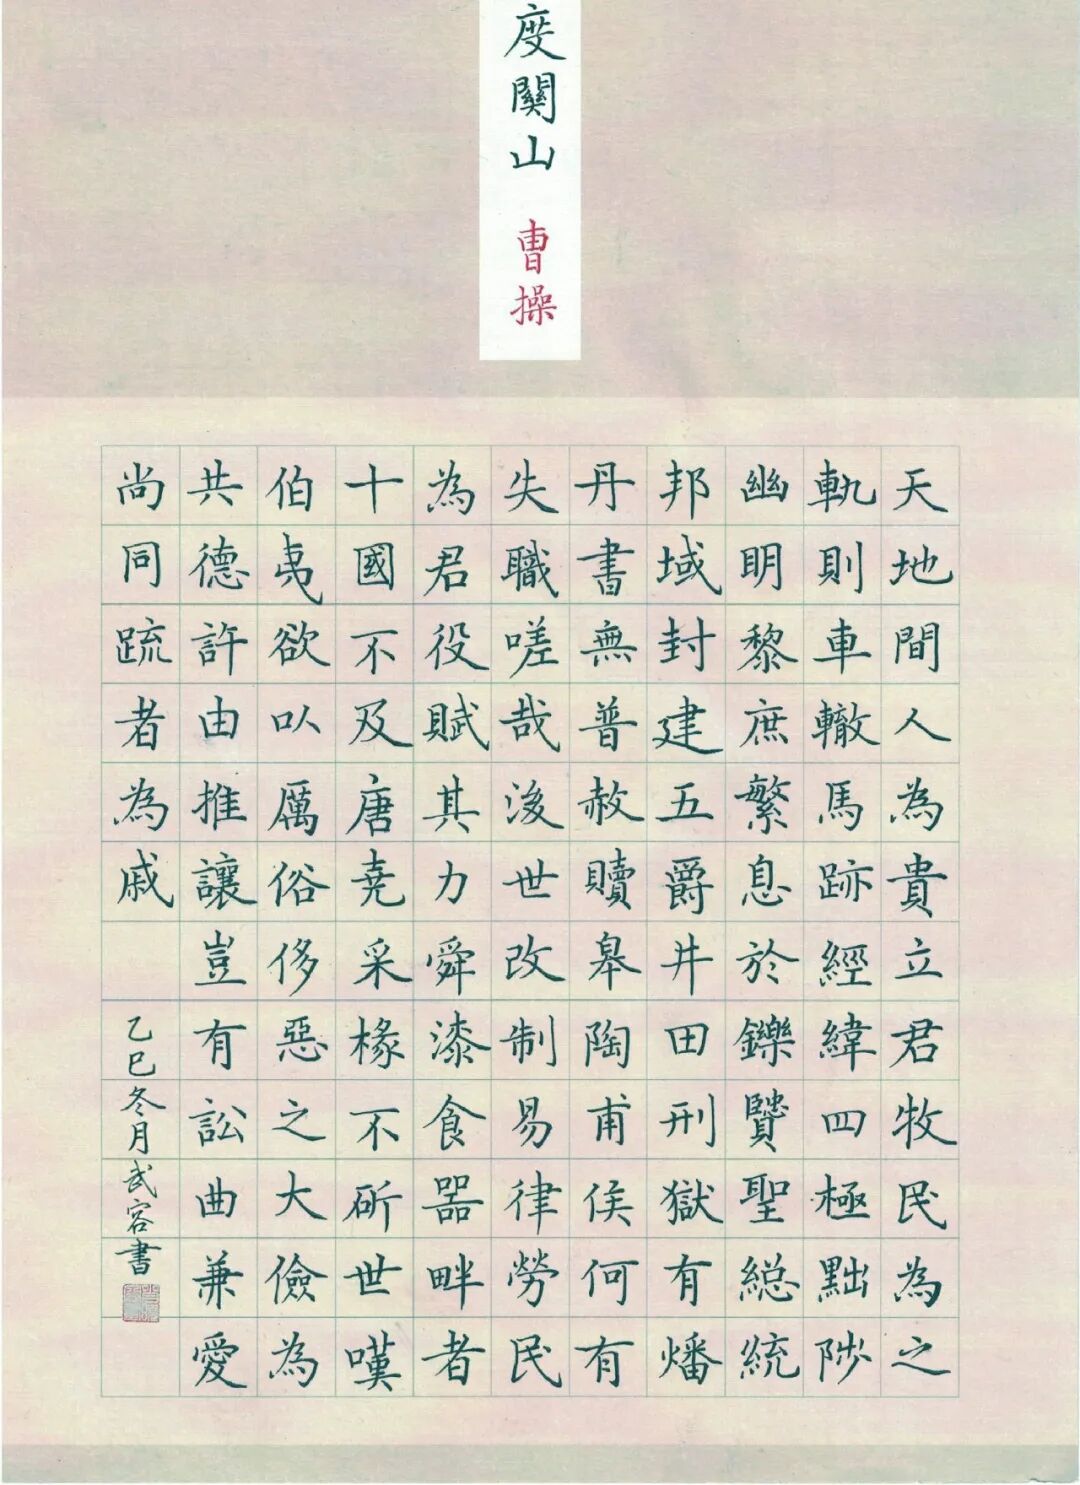 度關山
曹操
天地間人為貴立君牧民為之
軌則車轍馬跡經緯四極黜陟
幽明黎庶繁息於鑠賢聖總統
邦域封建五爵井田刑獄有燔
丹書無普赦贖皋陶甫侯何有
失職嗟哉後世改制易律勞民
為君役賦其力舜漆食器畔者
十國不及唐堯采椽不斫世嘆
伯夷欲以厲俗侈惡之大儉為
共德許由推讓豈有訟曲兼愛
尚同疏者為戚
乙巳冬月武容書